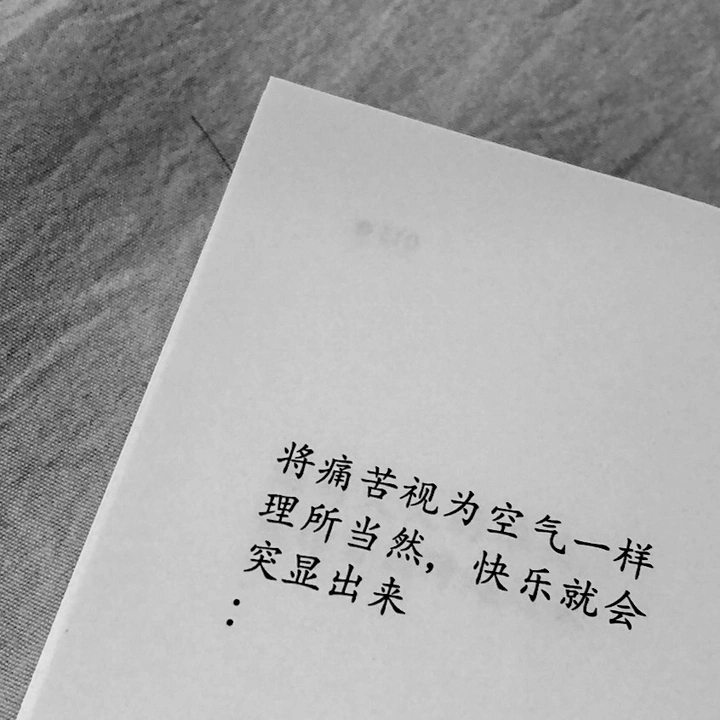 将痛苦视为空气一样
理所当然，快乐就会
突显出来
：